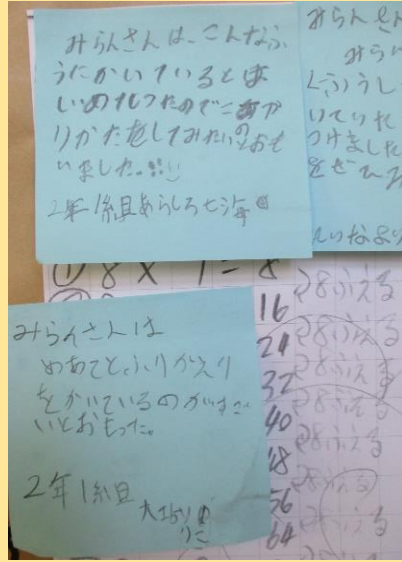 みらんさんは、こんなふ
うにかいているとは
りかたをしてみたいとおも
いました。
2年1組あらしろ七海
みらんさん
みら
くふうし
いていた
つけました
をぜひみ
れいなより
① 8 × 1 = 8
16 8ふえる
24 8ふえる
32 8ふえる
40 8ふえる
48 8ふえる
56 8ふえる
64 8ふえる
みらんさんは
めあてと、ふりかえり
をかいているのがすご
いとおもった。
2年1組
りこ